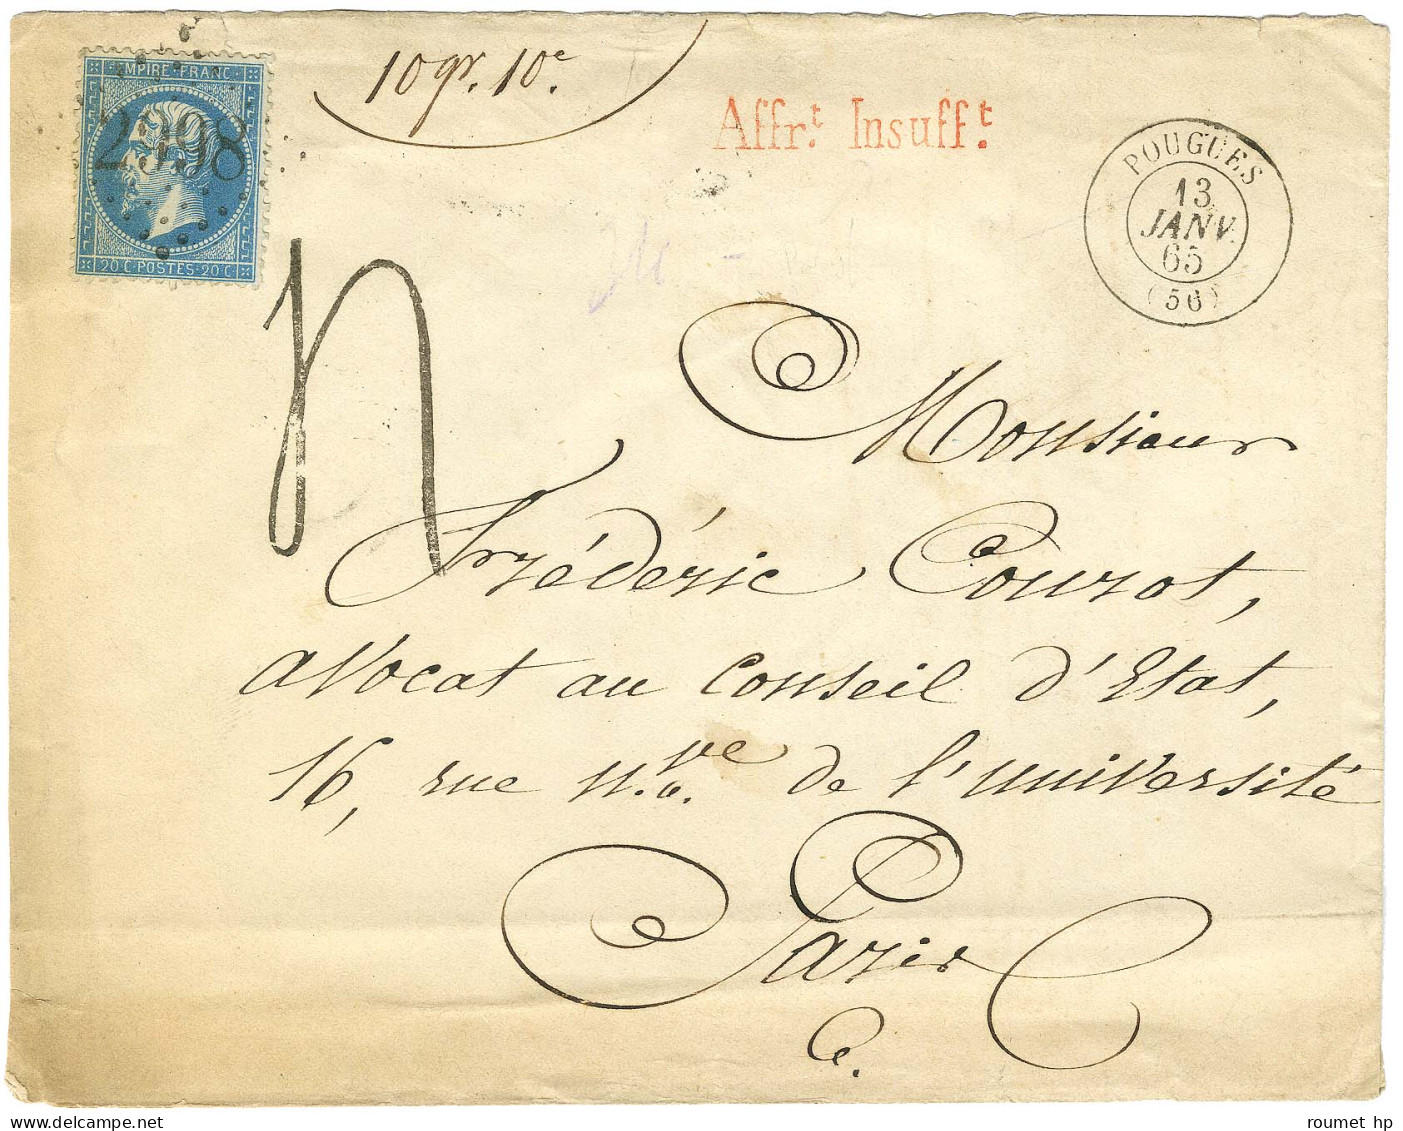 EMPIRE FRANC
2998
20 C POSTES 20 C
10 gr. 10c.
Affr.t Insuff.t
POUGUES
13
JANV.
65
(56)
Monsieur
Frédéric Courot,
avocat au conseil d'Etat,
16, rue n.ve de l'université
Paris
roumet hp